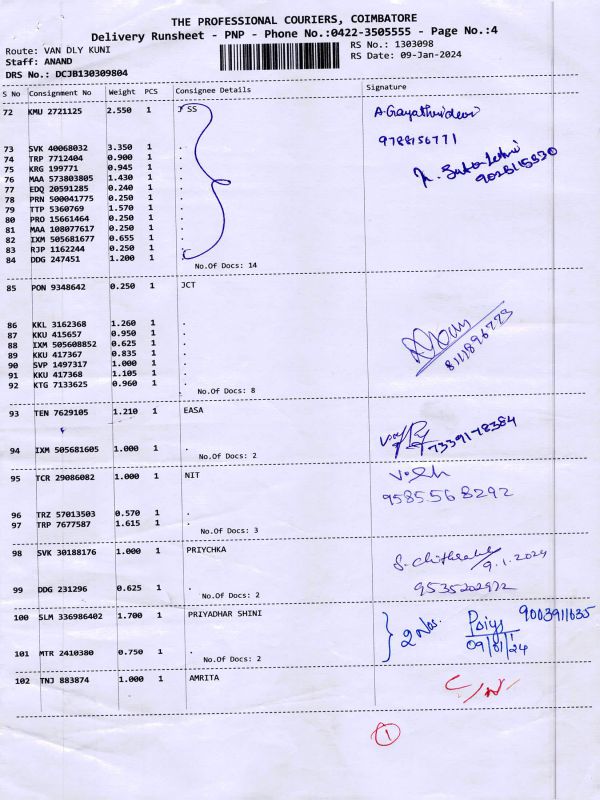 THE PROFESSIONAL COURIERS, COIMBATORE
Delivery Runsheet - PNP - Phone No.:0422-3505555 - Page No.:4
Route: VAN DLY KUNI RS No.: 1303098
Staff: ANAND RS Date: 09-Jan-2024
DRS No.: DCJB130309804
S No Consignment No Weight PCS Consignee Details Signature
72 KMU 2721125 2.550 1 J SS A.Gayathridevi
9788156771
73 SVK 40068032 3.350 1 .
74 TRP 7712404 0.900 1 .
75 KRG 199771 0.945 1 .
76 MAA 573803805 1.430 1 .
77 EDQ 20591285 0.240 1 .
78 PRN 500041775 0.250 1 .
79 TTP 5360769 1.570 1 .
80 PRO 15661464 0.250 1 .
81 MAA 108077617 0.250 1 .
82 IXM 505681677 0.655 1 .
83 RJP 1162244 0.250 1 .
84 DDG 247451 1.200 1 .
No.Of Docs: 14
85 PON 9348642 0.250 1 JCT
86 KKL 3162368 1.260 1 .
87 KKU 415657 0.950 1 .
88 IXM 505608852 0.625 1 .
89 KKU 417367 0.835 1 .
90 SVP 1497317 1.000 1 .
91 KKU 417368 1.105 1 .
92 KTG 7133625 0.960 1 .
8111896773
No.Of Docs: 8
93 TEN 7629105 1.210 1 EASA
7339178384
94 IXM 505681605 1.000 1 .
No.Of Docs: 2
95 TCR 29086082 1.000 1 NIT
9585568292
96 TRZ 57013503 0.570 1 .
97 TRP 7677587 1.615 1 .
No.Of Docs: 3
98 SVK 30188176 1.000 1 PRIYCHKA
9.1.2024
99 DDG 231296 0.625 1 . 9535202972
No.Of Docs: 2
100 SLM 336986402 1.700 1 PRIYADHAR SHINI 2 Nos. 9003911635
09/01/24
101 MTR 2410380 0.750 1 .
No.Of Docs: 2
102 TNJ 883874 1.000 1 AMRITA
1